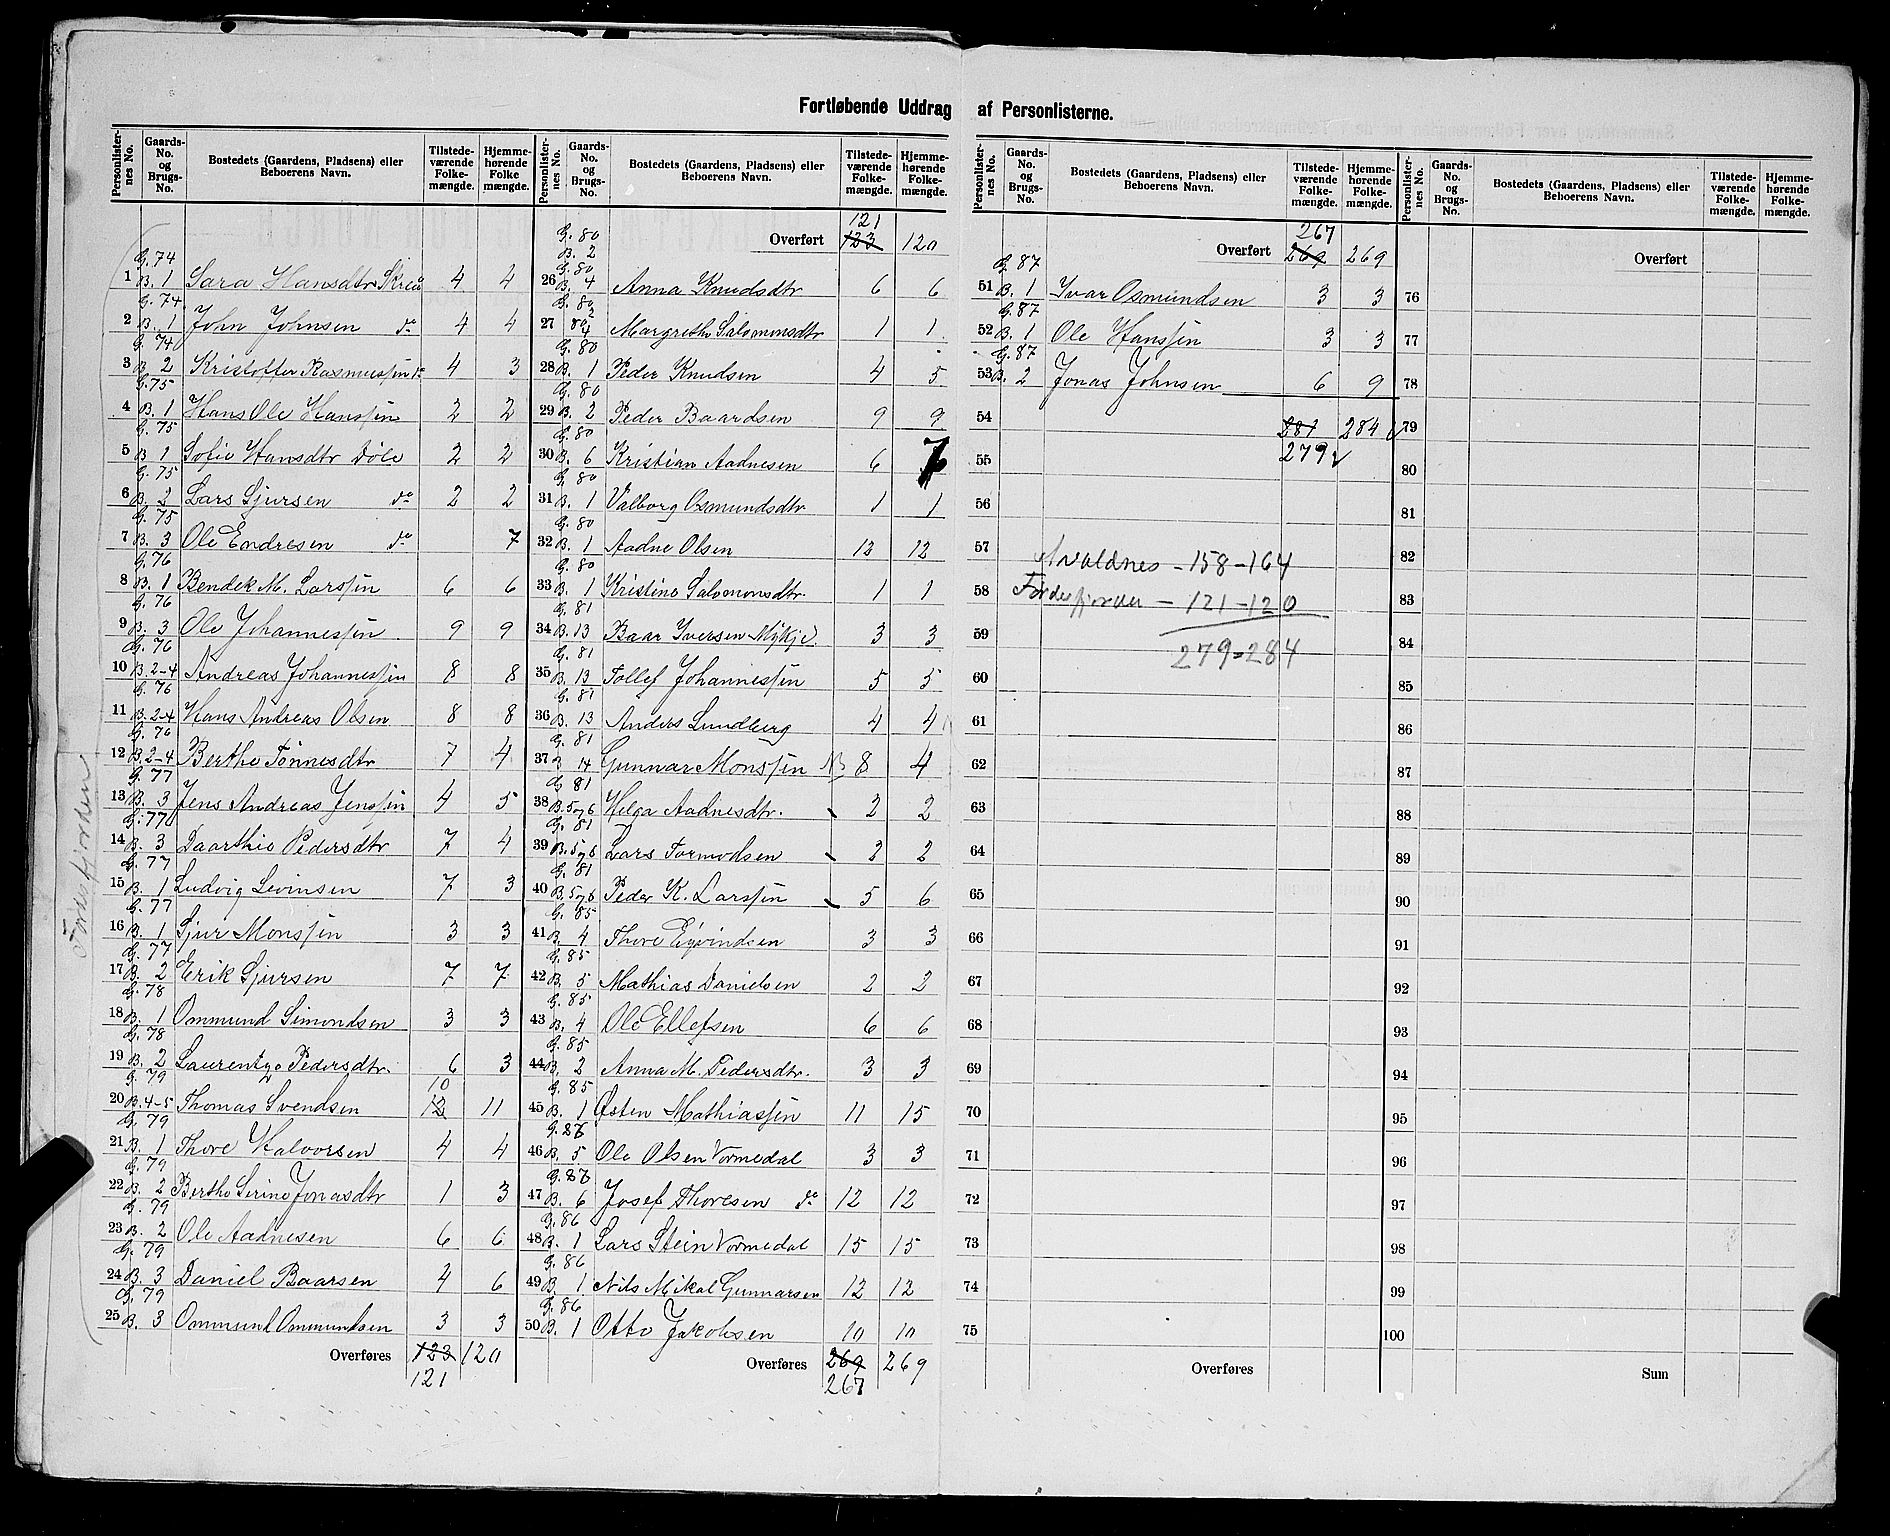 Fortløbende Uddrag af Personlisterne.
Personlister-nes No. Gaards-No. og Brugs-No. Bostedets (Gaardens, Pladsens) eller Beboerens Navn. Tilstede-værende Folke-mængde. Hjemme-hørende Folke mængde.
G. 74
1 B. 1 Sara Hansdtr Skree 4 4
G. 74
2 B. 1 John Johnsen do 4 4
G. 74
3 B. 2 Kristoffer Rasmussen do 4 3
G. 75
4 B. 1 Hans Ole Hanssen 2 2
G. 75
5 B 1 Sofie Hansdtr Döle 2 2
G. 75
6 B. 2 Lars Sjursen do 2 2
G. 75
7 B. 3 Ole Endresen do 7
G. 76
8 B. 1 Bendek M. Larssen 6 6
G. 76
9 B. 3 Ole Johannessen 9 9
G. 76
10 B. 2-4 Andreas Johannessen 8 8
G. 76
11 B. 2-4 Hans Andreas Olsen 8 8
G. 76
12 B. 2-4 Berthe Tønnesdtr 7 4
G. 77
13 B. 3 Jens Andreas Jenssen 4 5
G. 77
14 B. 3 Daarthie Pedersdtr 7 4
G. 77
15 B. 1 Ludvig Levinsen 7 3
G. 77
16 B. 1 Sjur Monssen 3 3
G. 77
17 B. 2 Erik Sjursen 7 7
G. 78
18 B. 1 Ommund Simondsen 3 3
G. 78
19 B. 2 Pedersdtr. 6 3
G. 79 10
20 B. 4-5 Thomas Svendsen 12 11
G. 79
21 B. 1 Thore Halvorsen 4 4
G. 79
22 B. 2 Berthe Serine Jonasdtr 1 3
G. 79
23 B. 2 Ole Aadnesen 6 6
G. 79
24 B. 3 Daniel Baarsen 4 6
G. 79
25 B. 3 Ommund Ommundsen 3 3
Overføres 123 120
121
Førresfjorden
Personlister-nes No. Gaards-No. og Brugs-No. Bostedets (Gaardens, Pladsens) eller Beboerens Navn. Tilstede-værende Folke-mængde. Hjemme-hørende Folke-mængde.
121
G. 80
B. 2 Overført 123 120
G. 80
26 B. 4 Anna Knudsdtr 6 6
G. 80
27 Margrethe Salomonsdtr 1 1
G. 80
28 B. 1 Peder Knudsen 4 5
G. 80
29 B. 2 Peder Baardsen 9 9
G. 80
30 B. 6 Kristian Aadnesen 6 7
G. 80
31 B. 1 Valborg Osmundsdtr 1 1
G. 80
32 B. 1 Aadne Olsen 12 12
G. 80
33 B. 1 Kristine Salomonsdtr. 1 1
G. 81
34 B. 13 Baar Iversen Mykje. 3 3
G. 81
35 B. 13 Tollef Johannessen 5 5
G. 81
36 B. 13 Anders Lundberg 4 4
G. 81
37 B 14 Gunnar Monssen 8 4
G 81
38 B. 5 og 6 Helga Aadnesdtr. 2 2
G. 81
39 B. 5 og 6 Lars Tormodsen 2 2
G. 81
40 B. 5 og 6 Peder K. Larssen 5 6
G. 85
41 B. 4 Thore Eyvindsen 3 3
G. 85
42 B. 5 Mathias Danielsen 2 2
G. 85
43 B. 4 Ole Ellefsen 6 6
G. 85
44 B. 2 Anna M. Pedersdtr. 3 3
G. 85
45 B. 1 Østen Mathiassen 11 15
G. 86
46 B. 5 Ole Olsen Vormedal 3 3
G. 86
47 B. 6 Josef Thoresen do 12 12
G. 86
48 B. 1 Lars Stein Vormedal 15 15
G. 86
49 B. 1 Nils Mikal Gunnarsen 12 12
G. 86
50 B. 1 Otto Jakobsen 10 10
Overføres 269 269
267
Personlister-nes No. Gaards-No. og Brugs-No. Bostedets (Gaardens, Pladsens) eller Beboerens Navn. Tilstede-værende Folke-mængde. Hjemme-hørende Folke-mængde.
267
Overført 269 269
G. 87
51 B. 1 Ivar Osmundsen 3 3
G. 87
52 B. 1 Ole Hanssen 3 3
G. 87
53 B. 2 Jonas Johnsen 6 9
54 281 284
55 279
56
57 Avaldnes - 158 - 164
58 - 121 - 120
59 279 = 284
60
61
62
63
64
65
66
67
68
69
70
71
72
73
74
75
Overføres
Personlister-nes No. Gaards-No. og Brugs-No. Bostedets (Gaardens, Pladsens) eller Beboerens Navn. Tilstede-værende Folke-mængde. Hjemme-hørende Folke-mængde.
Overført
76
77
78
79
80
81
82
83
84
85
86
87
88
89
90
91
92
93
94
95
96
97
98
99
100
Sum